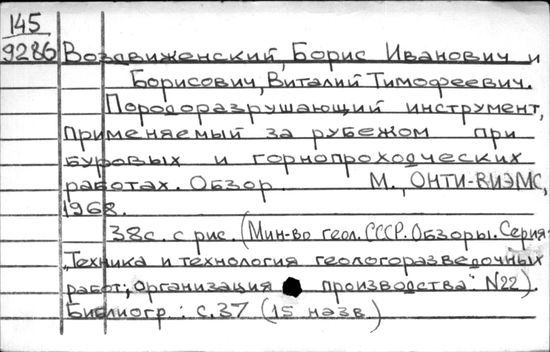 145
9286 Воздвиженский, Борис Иванович и
Борисович, Виталий Тимофеевич.
Породоразрушающий инструмент,
применяемый за рубежом при
буровых и горнопроходческих
работах. Обзор. М., ОНТИ-ВИЭМС,
1968.
38с. с рис. (Мин-во геол. СССР. Обзоры. Серия:
„Техника и технология геологоразведочных
работ; организация производства". N22).
Библиогр.: с. 37 (15 назв.)